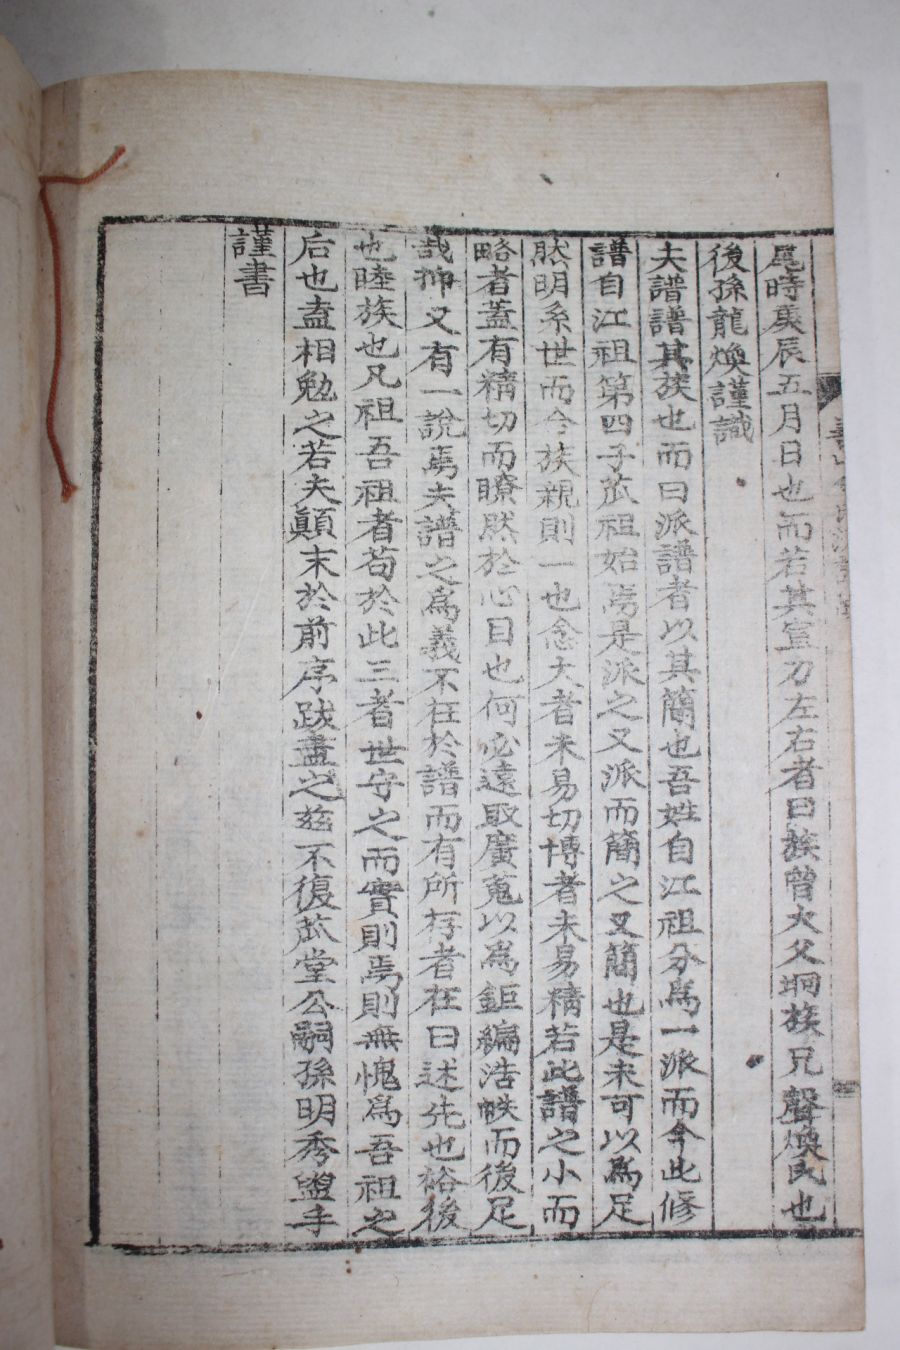 尾時庚辰五月日也而若其宣力左右者曰族曾大父垌族兄聲煥民也
後孫龍煥謹識
夫譜譜其族也而曰派譜者以其簡也吾姓自江祖分爲一派而今此修
譜自江祖第四子苽祖始焉是派之又派而簡之又簡也是未可以爲足
然明系世而今族親則一也念大者未易切博者未易精若此譜之小而
略者蓋有精切而瞭然於心目也何必遠取廣蒐以爲鉅編浩帙而後足
哉抑又有一說焉夫譜之爲義不在於譜而有所存者在曰述先也裕後
也睦族也凡祖吾祖者苟於此三者世守之而實則焉則無愧爲吾祖之
后也盍相勉之若夫顚末於前序跋盡之玆不復苽堂公嗣孫明秀盥手
謹書